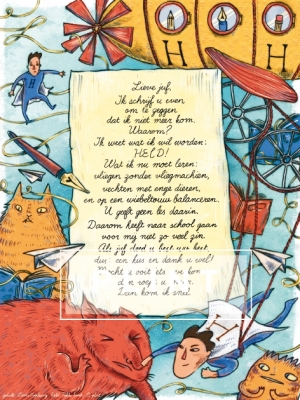 H H
H
Lieve juf,
Ik schrijf u even
om te zeggen
dat ik niet meer kom.
Waarom?
Ik weet wat ik wil worden:
HELD!
Wat ik nu moet leren:
vliegen zonder vliegmachien,
vechten met enge dieren,
en op een wiebeltouw balanceren.
U geeft geen les daarin.
Daarom heeft naar school gaan
voor mij niet zo veel zin.
Als juf deed u best uw best,
een kus en dank u wel!
ooit iets
dan
Dan kom ik snel
H